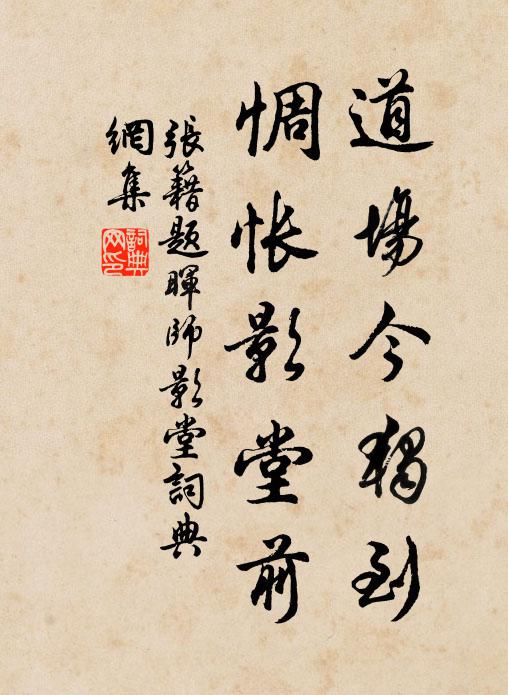 道場今獨到
惆悵影堂前
張籍題暉師影堂詞典
網集
詞典
网印